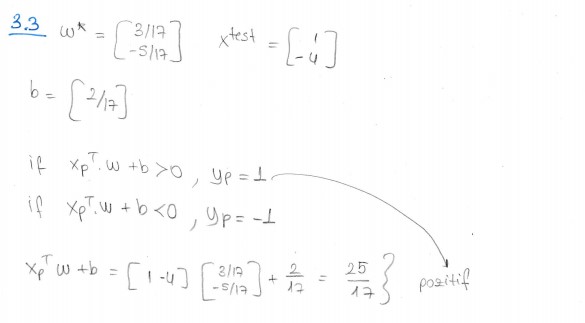 3.3 w* = [3/17 -5/17] x^test = [1 -4]
b = [2/17]
if x_p^T. w + b > 0, y_p = 1
if x_p^T. w + b < 0, y_p = -1
x_p^T w + b = [1 -4] [3/17 -5/17] + 2/17 = 25/17 } pozitif